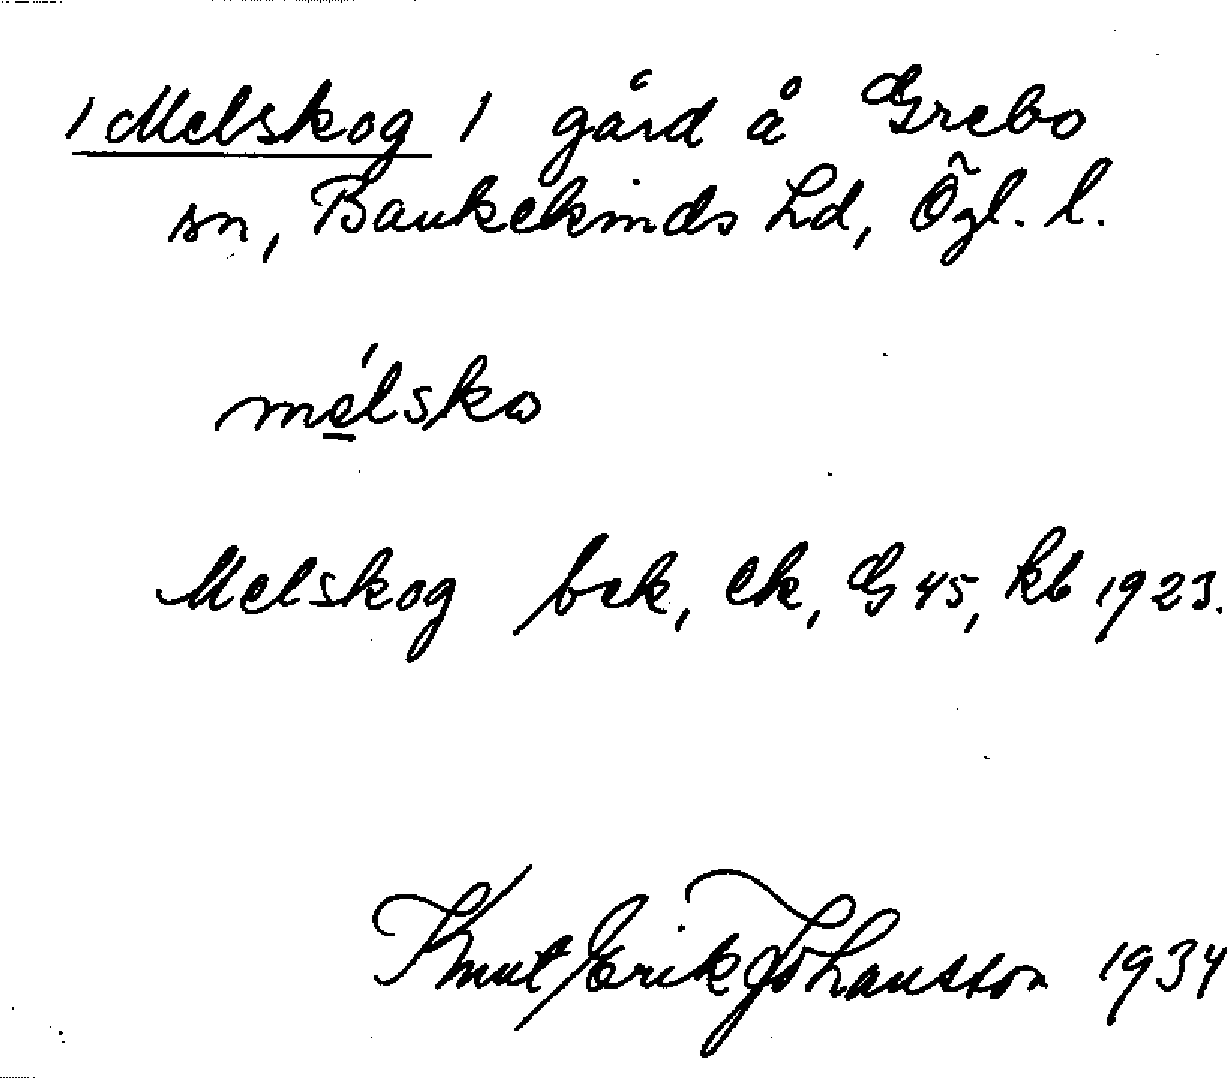 / Melskog / gård å Grebo
sn, Bankekinds hd, Ögl. l.
mélsko
Melskog bek, ek, G 45, kb 1923.
Knut Erik Johansson 1934